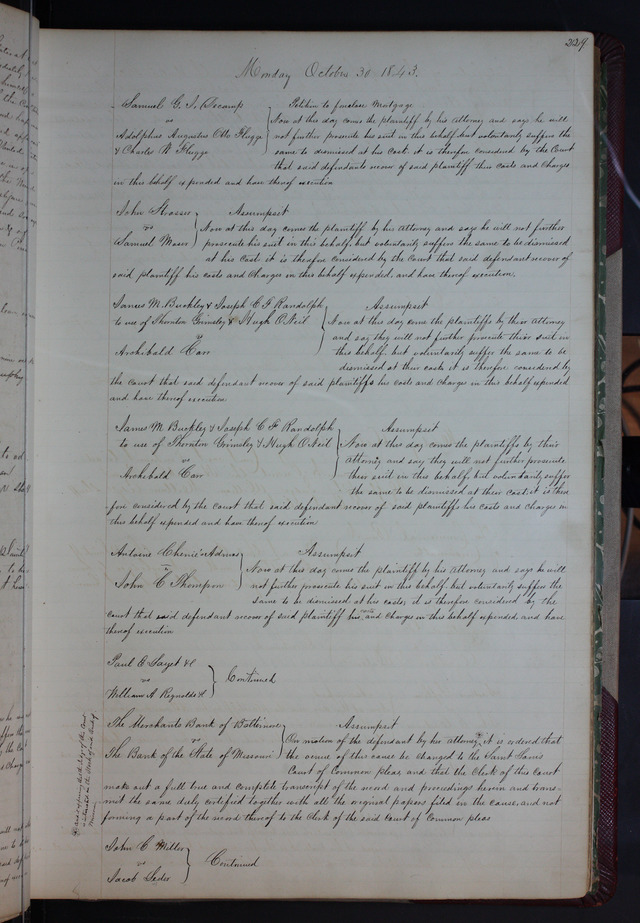 229
Monday October 30 1843.
Samuel G. I. Decamp } Petition to foreclose Mortgage
vs Now at this day comes the plaintiff by his Attorney and says he will
Adolphus Augustus Otto Flugge not further prosecute his suit in this behalf but voluntarily suffers the
& Charles W Flugge same to be dismissed at his Cost, it is therefore considered by the Court
that said defendants recover of said plaintiff their costs and Charges
in this behalf expended and have thereof execution
John Hosser } Assumpsit
vs Now at this day comes the plaintiff by his Attorney and say he will not further
Samuel Moser prosecute his suit in this behalf, but voluntarily suffers the same to be dismissed
at his Cost, it is therefore considered by the Court that said defendant recover of
said plaintiff his costs and Charges in this behalf expended, and have thereof execution.
James M. Buckley & Joseph C F Randolph } Assumpsit
to use of Thornton Grimsley & Hugh O Neil Now at this day come the plaintiffs by their Attorney
vs and say they will not further prosecute their suit in
Archibald Carr this behalf, but voluntarily suffer the same to be
dismissed at their costs it is therefore considered by
the Court that said defendant recover of said plaintiffs his costs and charges in this behalf expended
and have thereof execution
James M Buckley & Joseph C F Randolph } Assumpsit
to use of Thornton Grimsley & Hugh O Neil Now at this day comes the plaintiffs by their
vs Attorney and say they will not further prosecute
Archibald Carr their suit in this behalf, but voluntarily suffer
the same to be dismissed at their cost, it is there
fore considered by the Court that said defendant recover of said plaintiffs his costs and charges in
this behalf expended and have thereof execution
Antoine Chenie Admr } Assumpsit
vs Now at this day comes the plaintiff by his Attorney and says he will
John C Thompson not further prosecute his suit in this behalf but voluntarily suffers the
same to be dismissed at his costs, it is therefore considered by the
Court that said defendant recover of said plaintiff his costs and charges in this behalf expended, and have
thereof execution
Paul E &c
vs } Continued
William A Reynolds &c
The Merchants Bank of Baltimore } Assumpsit
vs On motion of the defendant by her attorney, it is ordered that
The Bank of the State of Missouri the venue of this cause be changed to the Saint Louis
Court of Common pleas, and that the Clerk of this Court
make out a full true and complete transcript of the record and proceedings herein and trans-
mit the same duly certified together with all the original papers filed in the cause, and not
forming a part of the record thereof to the Clerk of the said Court of Common pleas
of the Court
Missouri
John C Miller
vs } Continued
Jacob